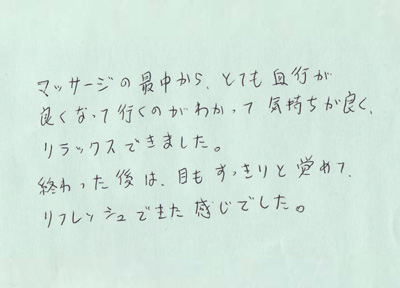 マッサージの最中から、とても血行が
良くなって行くのがわかって気持ちが良く、
リラックスできました。
終わった後は、目もすっきりと覚めて、
リフレッシュできた感じでした。